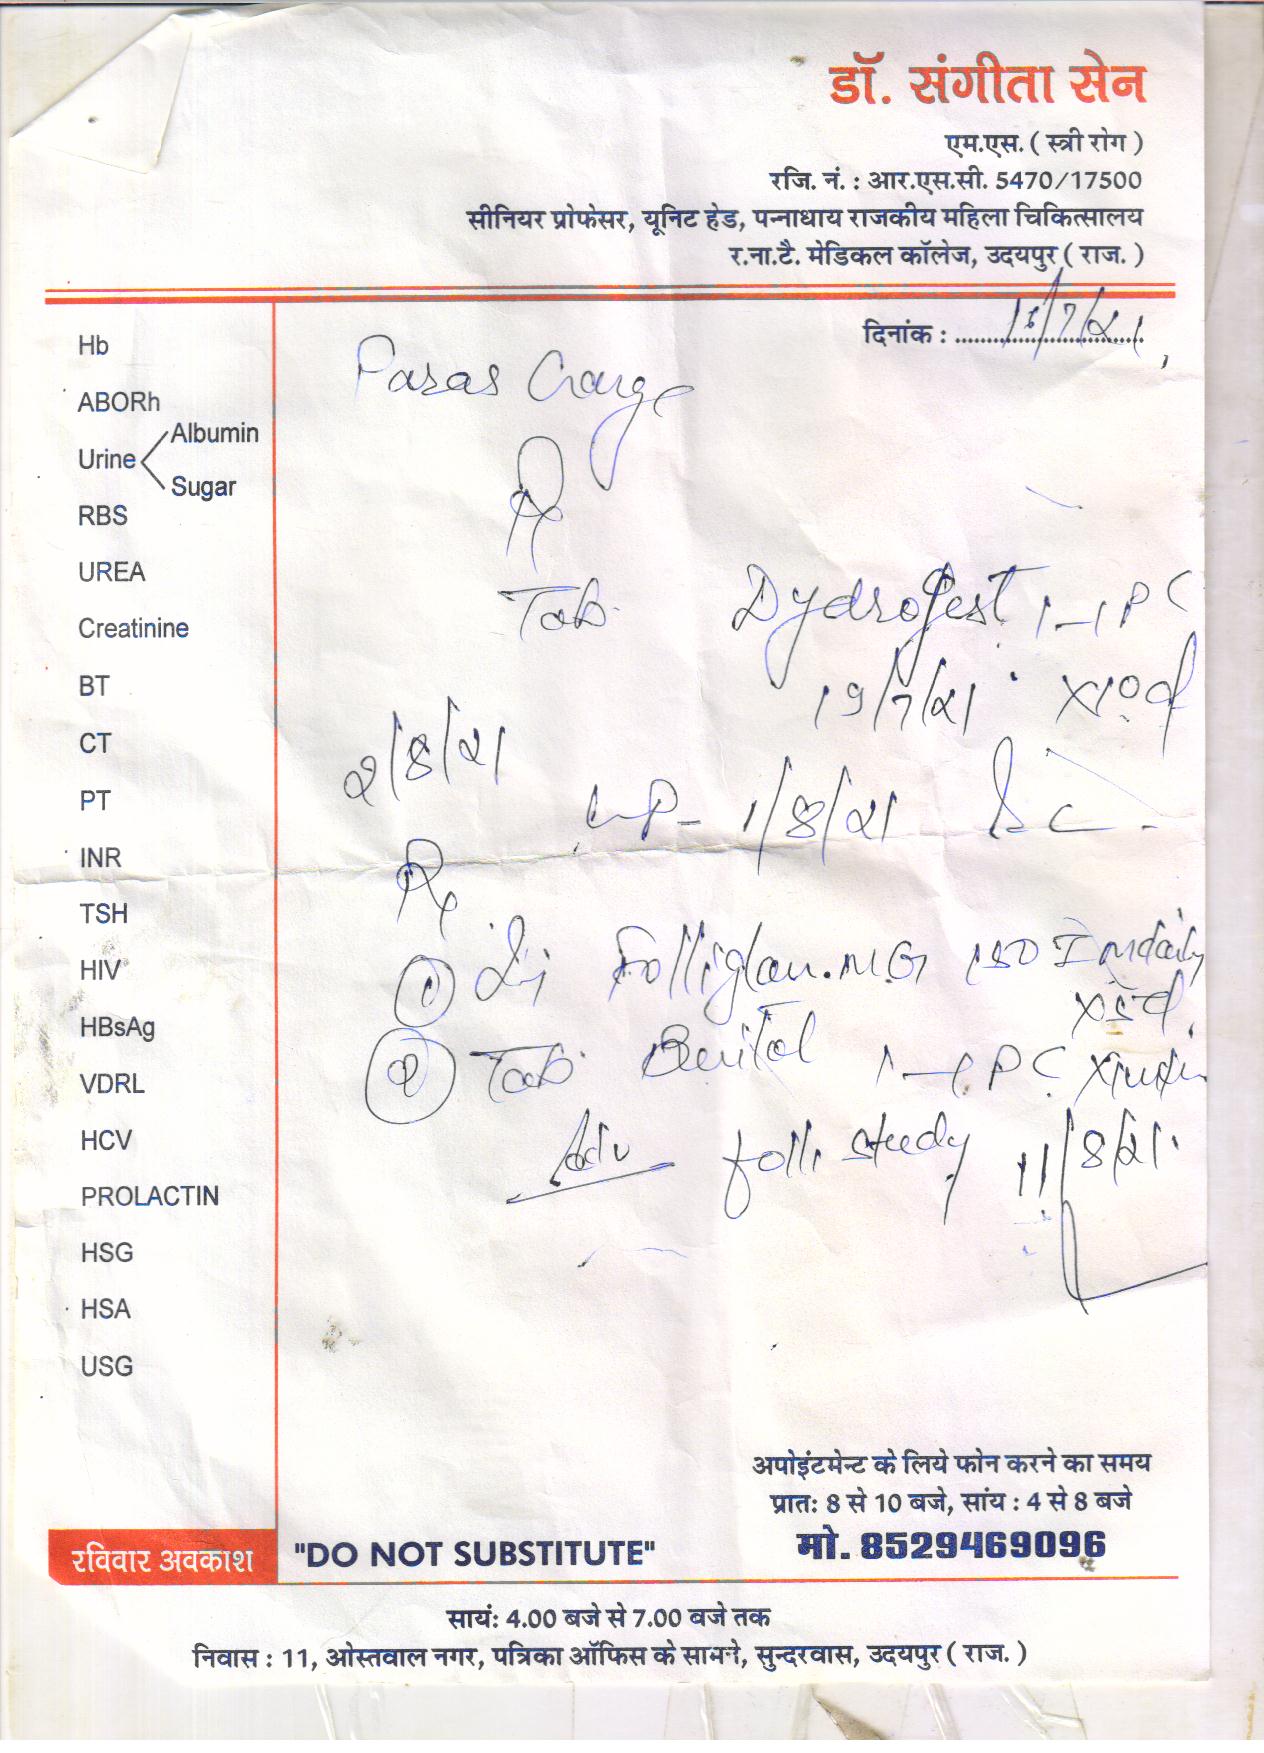 डॉ. संगीता सेन
एम.एस. ( स्त्री रोग )
रजि. नं. : आर.एस.सी. 5470/17500
सीनियर प्रोफेसर, यूनिट हेड, पन्नाधाय राजकीय महिला चिकित्सालय
र.ना.टै. मेडिकल कॉलेज, उदयपुर ( राज. )
दिनांक : /7/21
Hb
ABORh
Urine Albumin
Sugar
RBS
UREA
Creatinine
BT
CT
PT
INR
TSH
HIV
HBsAg
VDRL
HCV
PROLACTIN
HSG
HSA
USG
Paras
Rx
Tab. 1-1 PC
19/7/21 x10d
2/8/21
LMP- 1/8/21
Rx
① Inj 150 IM daily
② Tab. 1-1 PC
Adv folli study 11/8/21.
अपोइंटमेन्ट के लिये फोन करने का समय
प्रातः 8 से 10 बजे, सांय : 4 से 8 बजे
मो. 8529469096
रविवार अवकाश
"DO NOT SUBSTITUTE"
सायं: 4.00 बजे से 7.00 वजे तक
निवास : 11, ओस्तवाल नगर, पत्रिका ऑफिस के सामने, सुन्दरवास, उदयपुर ( राज. )